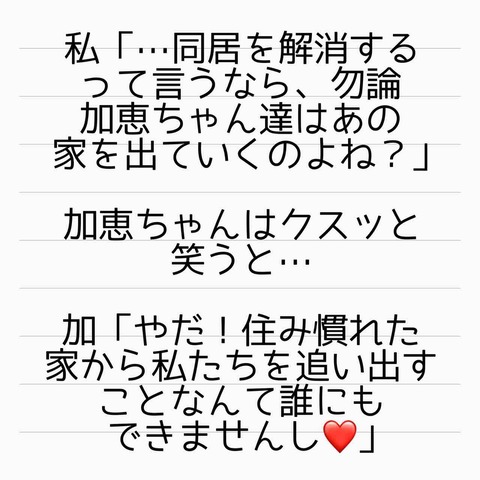 私「…同居を解消する
って言うなら、勿論
加恵ちゃん達はあの
家を出ていくのよね？」
加恵ちゃんはクスッと
笑うと…
加「やだ！住み慣れた
家から私たちを追い出す
ことなんて誰にも
できませんし❤️」